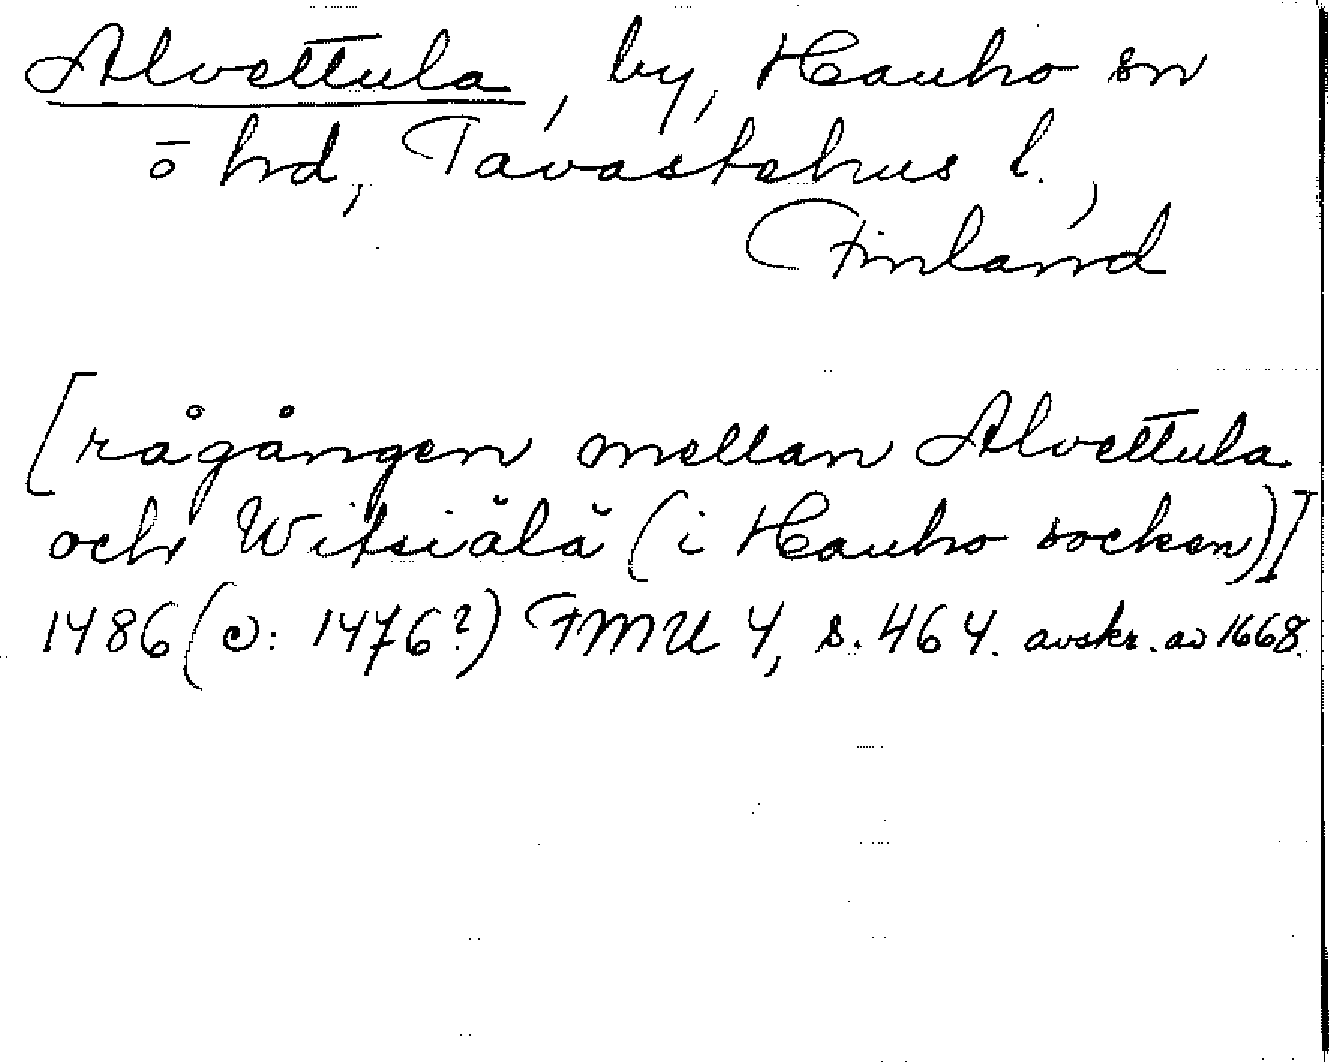 Alvettula, by, Hauho sn
ō hd, Tavastehus l.,
Finland
[rågången mellan Alvettula
och Witsiälä (i Hauho socken)]
1486 (ɔ: 1476?) FMU 4, s. 464. avskr. av 1668.